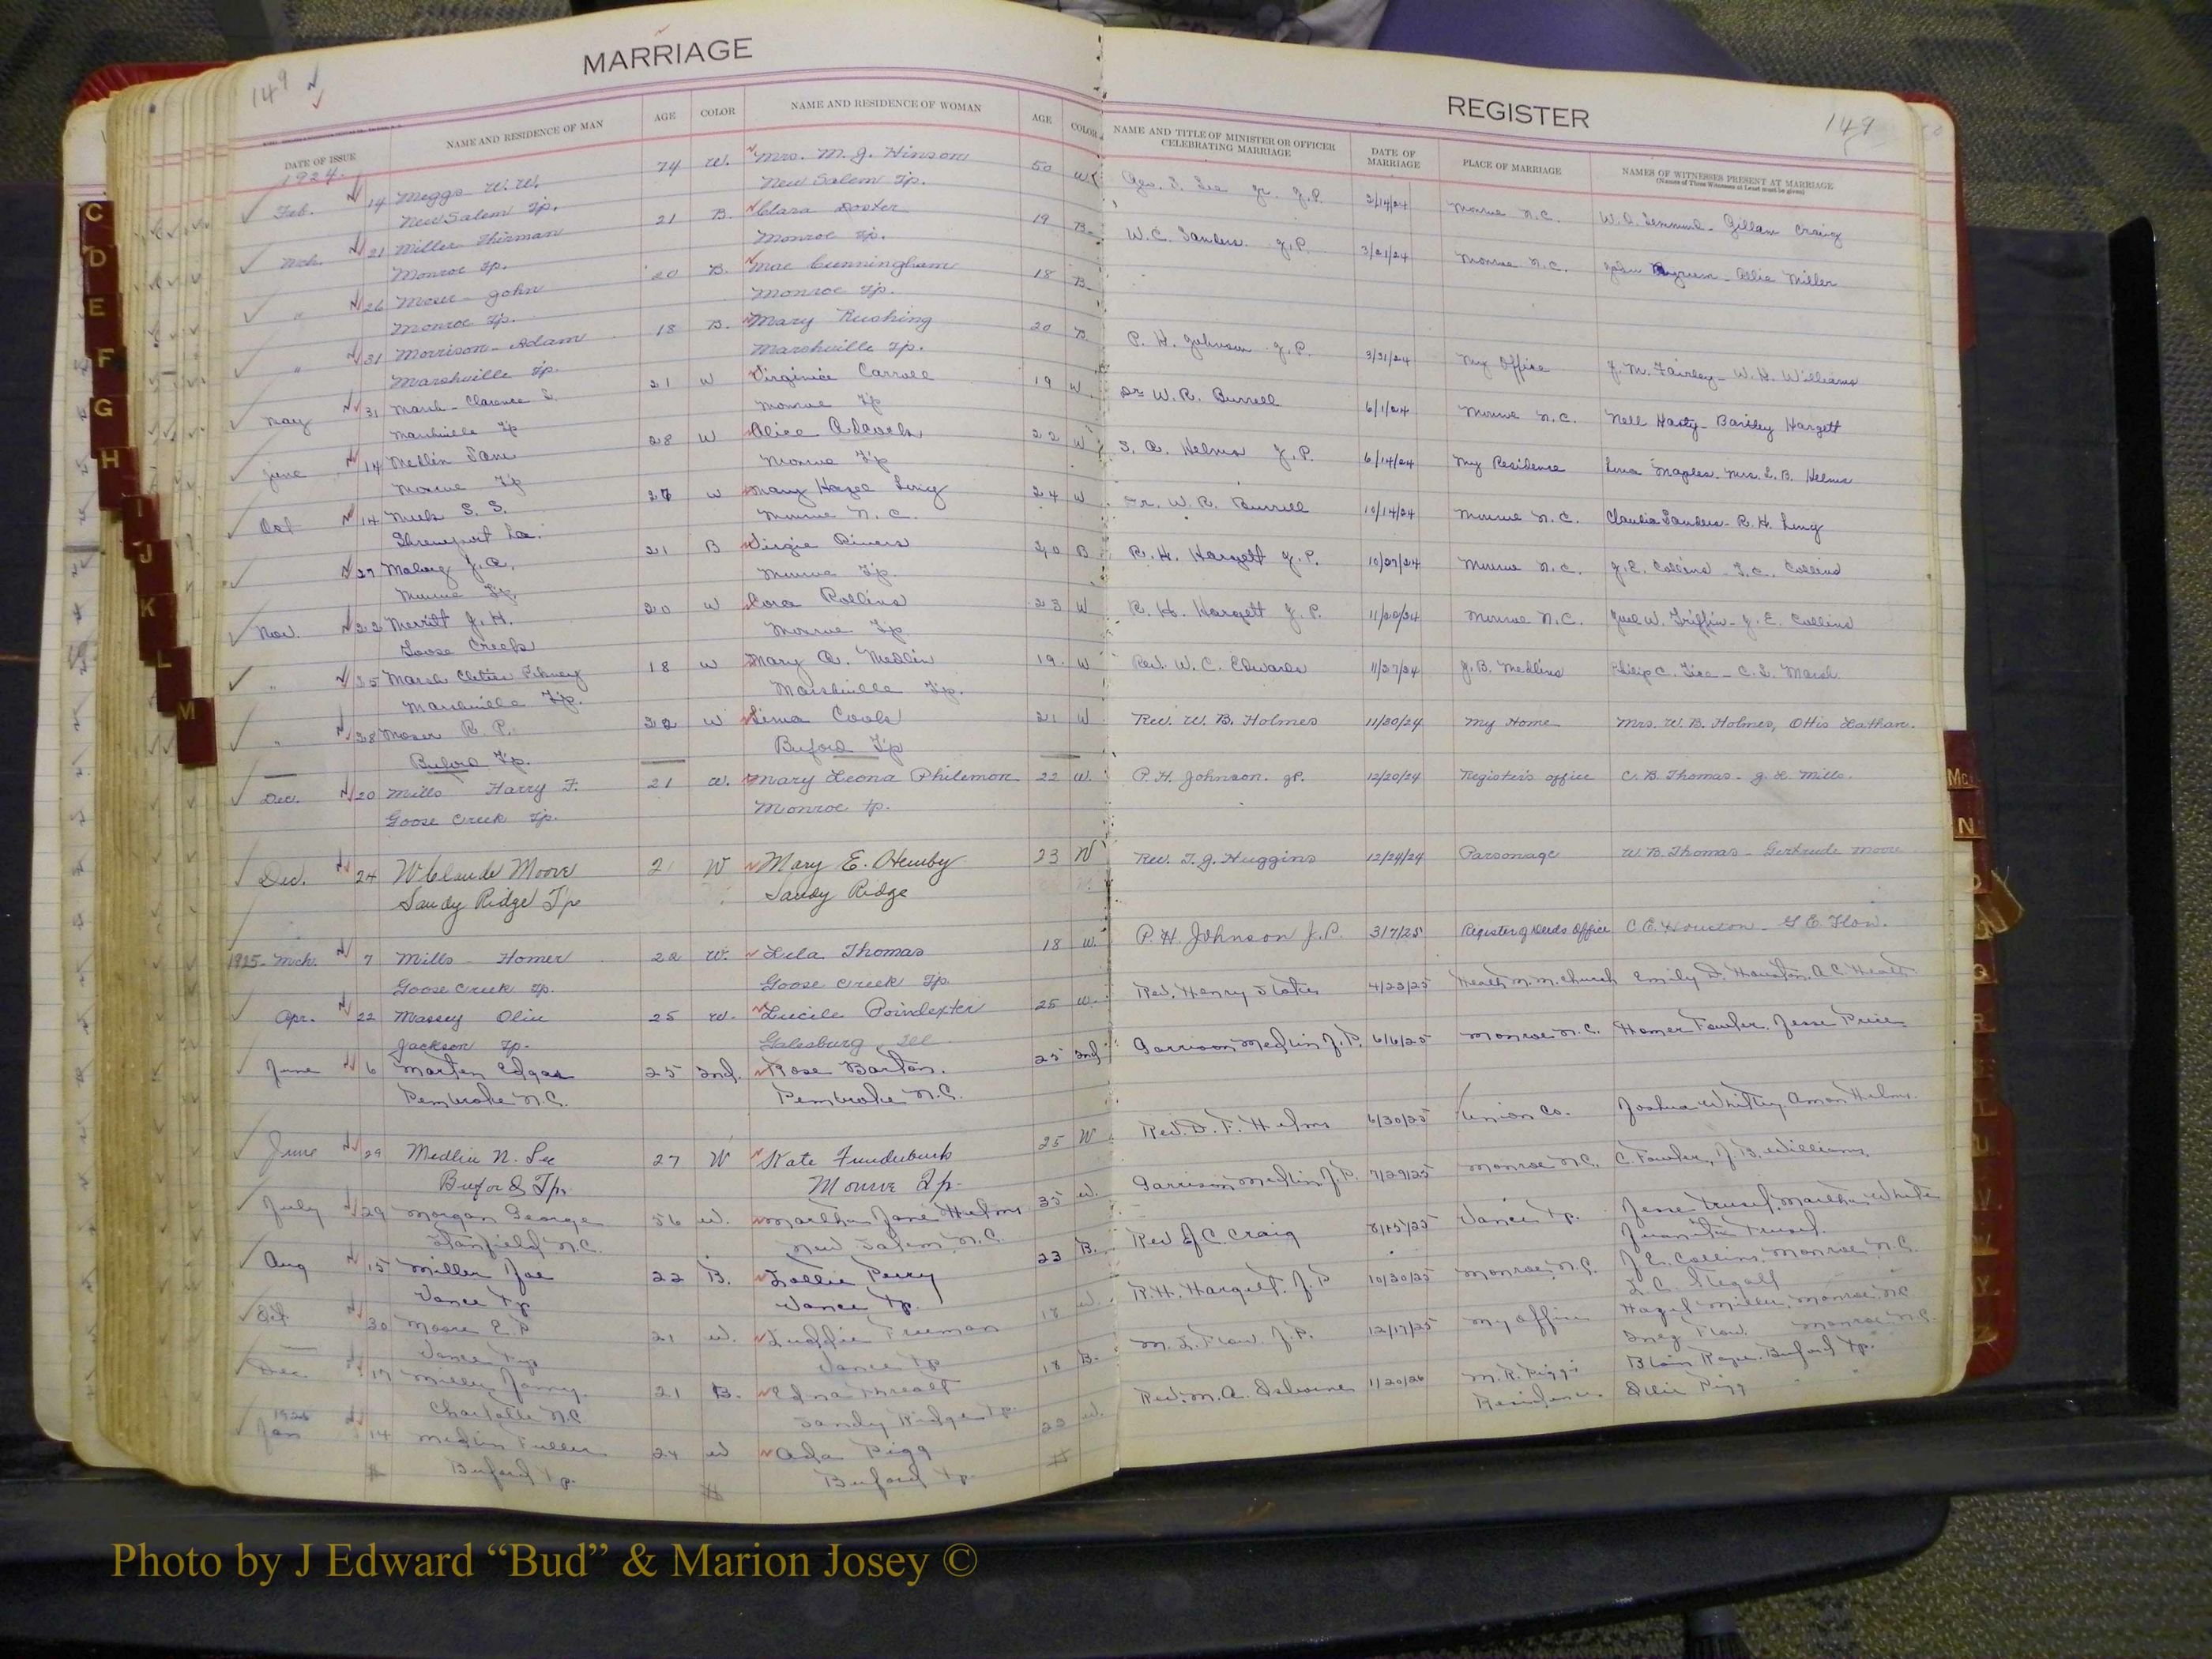 149
MARRIAGE
DATE OF ISSUE NAME AND RESIDENCE OF MAN AGE COLOR NAME AND RESIDENCE OF WOMAN AGE COLOR
1924
Feb. 14 Meggs W. W. 74 W. Mrs. M. J. Hinson 50 W
New Salem Tp. New Salem Tp.
Mch. 21 Miller Thirman 21 B. Clara Doster 19 B.
Monroe Tp. Monroe Tp.
" 26 Moser - John 20 B. Mae Cunningham 18 B.
Monroe Tp. Monroe Tp.
" 31 Morrison - Adam 18 B. Mary Rushing 20 B.
Marshville Tp. Marshville Tp.
May 31 Marsh - Clarence S. 21 W Virginia Carroll 19 W.
Marshville Tp Monroe Tp
June 14 Medlin Sam 28 W Alice Adcock 22 W
Monroe Tp Monroe Tp
Oct 14 Meek S. S. 27 W Mary Hazel Long 24 W
Shreveport La. Monroe N. C.
27 J. A. 21 B Virgie Rivers 20 B
Monroe Tp. Monroe Tp.
Nov. 22 Merritt J. H. 20 W Cora Rollins 23 W
Goose Creek Monroe Tp
" 25 Marsh Pikney 18 W Mary A. Medlin 19 W
Marshville Tp. Marshville Tp.
" 28 Moser R. P. 22 W Cook 21 W
Buford Tp. Buford Tp
Dec. 20 Mills Harry F. 21 W. Mary Leona Philemon 22 W.
Goose Creek Tp. Monroe Tp.
Dec. 24 W Claude Moore 21 W Mary E. Hemby 23 W
Sandy Ridge Tp Sandy Ridge
1925 - Mch. 7 Mills - Homer 22 W. Lela Thomas 18 W.
Goose Creek Tp. Goose Creek Tp.
Apr. 22 Massey Olin 25 W. Lucile Poindexter 25 W.
Jackson Tp. Galesburg, Ill
June 6 Marten Edgar 25 Ind. Rose Barton. 25 Ind
Pembroke N.C. Pembroke N.C.
June 29 Medlin N. Lee 27 W Kate Funderburk 25 W
Buford Tp. Monroe Tp.
July 29 Morgan George 56 W. Martha Jane Helms 35 W.
Stanfield N.C. New Salem N.C.
Aug 15 Miller Joe 22 B. Lollie Perry 23 B.
Vance Tp Vance Tp.
Oct 30 Moore E. P 21 W. Freeman 18 W.
Vance Tp Vance Tp
Dec 17 21 B. Edna Threatt 18 B.
Charlotte N.C Sandy Ridge Tp.
1926
Jan 14 Medlin Fuller 24 W Ada Pigg 22 W.
Buford Tp. Buford Tp.
REGISTER
149
NAME AND TITLE OF MINISTER OR OFFICER CELEBRATING MARRIAGE DATE OF MARRIAGE PLACE OF MARRIAGE NAMES OF WITNESSES PRESENT AT MARRIAGE
(Names of Three Witnesses at Least must be given)
Geo. S. Lee Jr. J.P. 2/14/24 Monroe N.C. Gillam Craig
W. C. Sanders. J.P. 3/21/24 Monroe N.C. John - Miller
P. H. Johnson J.P. 3/31/24 My Office J. M. Fairley - W. H. Williams
Dr W. R. Burrell 6/1/24 Monroe N.C. Nell Hasty - Bartley Hargett
S. A. Helms J.P. 6/14/24 My Residence Maples. Mrs. S. B. Helms
Dr. W. R. Burrell 10/14/24 Monroe N.C. Claudia Sanders - R. H. Long
R. H. Hargett J.P. 10/27/24 Monroe N.C. J. E. Collins - T. C. Collins
R. H. Hargett J.P. 11/20/24 Monroe N.C. W. Griffin - J. E. Collins
Rev. W. C. Edwards 11/27/24 J. B. Medlins C. - C. S. Marsh
Rev. W. B. Holmes 11/30/24 My Home Mrs. W. B. Holmes, Ottis Lathan.
P. H. Johnson. JP. 12/20/24 Register's office C. B. Thomas - J. L. Mills.
Rev. T. J. Huggins 12/24/24 Parsonage W. B. Thomas - Gertrude Moore
P. H. Johnson J.P. 3/7/25 Register of Deeds Office C. E. Houston - G. E. Flow.
Rev. Henry Stokes 4/22/25 Heath M. M. Church Emily D. Houston. A. C. Heath
Garrison Medlin J.P. 6/6/25 Monroe N.C. Homer Fowler, Jesse Price
Rev. D. F. Helms 6/30/25 Union Co. Joshua Whitley Amon Helms.
Garrison Medlin J.P. 7/29/25 Monroe N.C. C. Fowler, J. B. Williams
Rev J. C. Craig 8/15/25 Vance Tp. Jesse Martha White
Juanita
R. H. Hargett. J.P 10/30/25 Monroe, N.C. J. E. Collins, Monroe, N.C.
L. C. Stegall
M. L. Flow J.P. 12/17/25 My office Hazel Miller, Monroe, N.C
Flow Monroe N.C.
Rev. M. A. Osborne 1/20/26 M. R. Piggs Blain Buford Tp.
Residence Ollie Pigg " "
C
D
E
F
G
H
I
J
K
L
M
Mc
N
Q
R
U
V
W
Y
Photo by J Edward “Bud” & Marion Josey ©